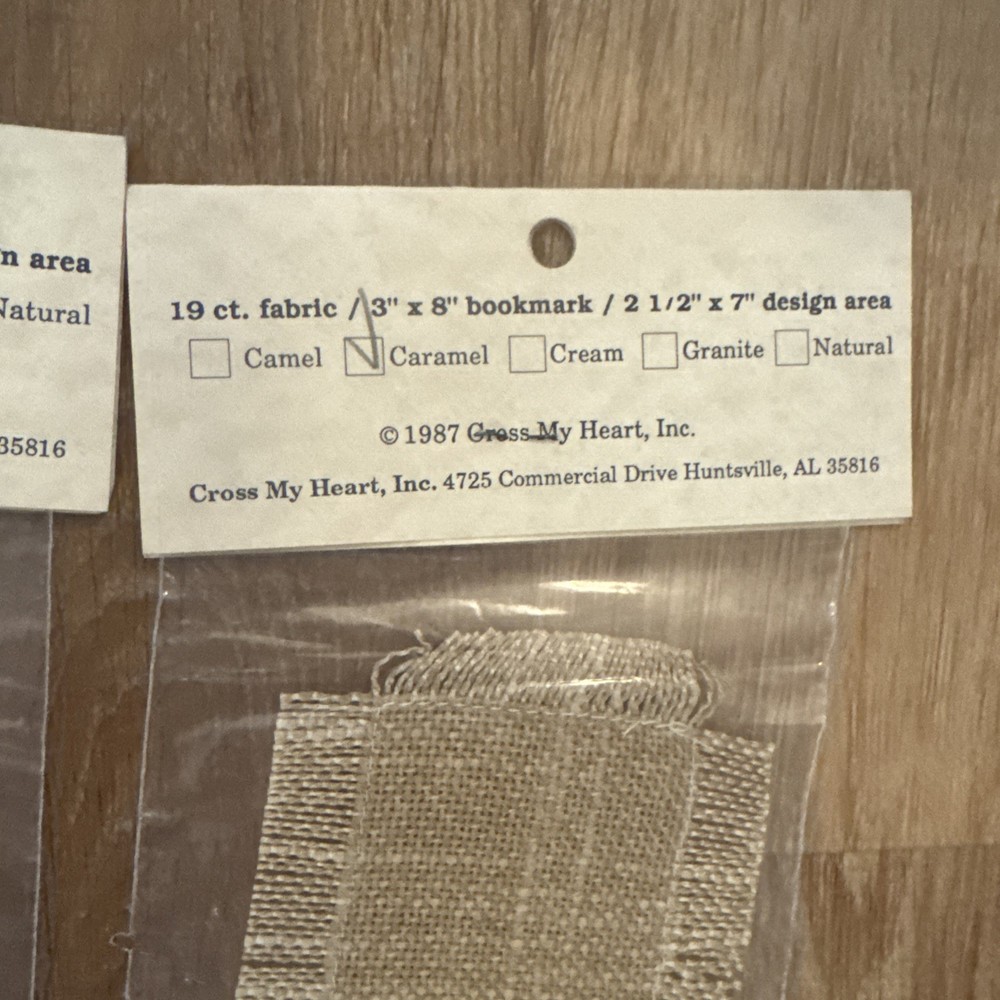 n area
Natural
35816
19 ct. fabric / 3" x 8" bookmark / 2 1/2" x 7" design area
Camel Caramel Cream Granite Natural
© 1987 Cross My Heart, Inc.
Cross My Heart, Inc. 4725 Commercial Drive Huntsville, AL 35816